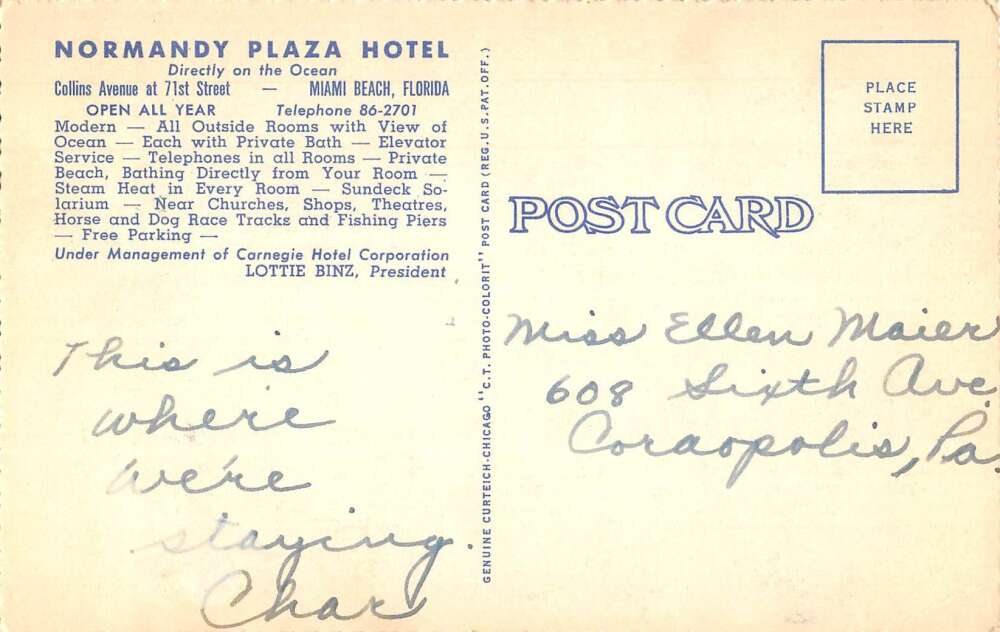 NORMANDY PLAZA HOTEL
Directly on the Ocean
Collins Avenue at 71st Street — MIAMI BEACH, FLORIDA
OPEN ALL YEAR Telephone 86-2701
Modern — All Outside Rooms with View of
Ocean — Each with Private Bath — Elevator
Service — Telephones in all Rooms — Private
Beach, Bathing Directly from Your Room —
Steam Heat in Every Room — Sundeck So-
larium — Near Churches, Shops, Theatres,
Horse and Dog Race Tracks and Fishing Piers
— Free Parking —
Under Management of Carnegie Hotel Corporation
LOTTIE BINZ, President
This is
where
we're
staying.
Char
GENUINE CURTEICH-CHICAGO "C.T. PHOTO-COLORIT" POST CARD (REG. U.S. PAT. OFF.)
PLACE
STAMP
HERE
POST CARD
Miss Ellen Maier
608 Sixth Ave.
Coraopolis, Pa.